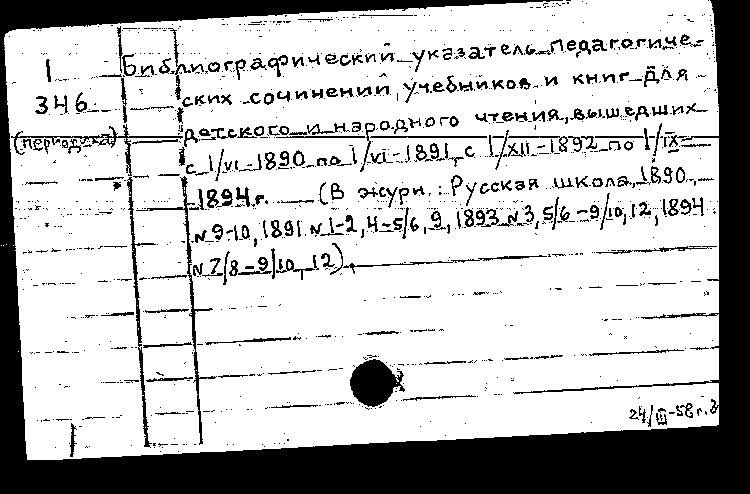 1
346
(периодика)
Библиографический указатель педагогиче-
ских сочинений, учебников и книг для
детского и народного чтения, вышедших
с 1/VI-1890 по 1/VI-1891, с 1/XII-1892 по 1/IX-
1894 г. (В журн.: Русская школа, 1890,
№ 9-10, 1891 № 1-2, 4-5/6, 9, 1893 № 3, 5/6-9/10, 12, 1894
№ 7/8-9/10, 12).
24/III-58 г.